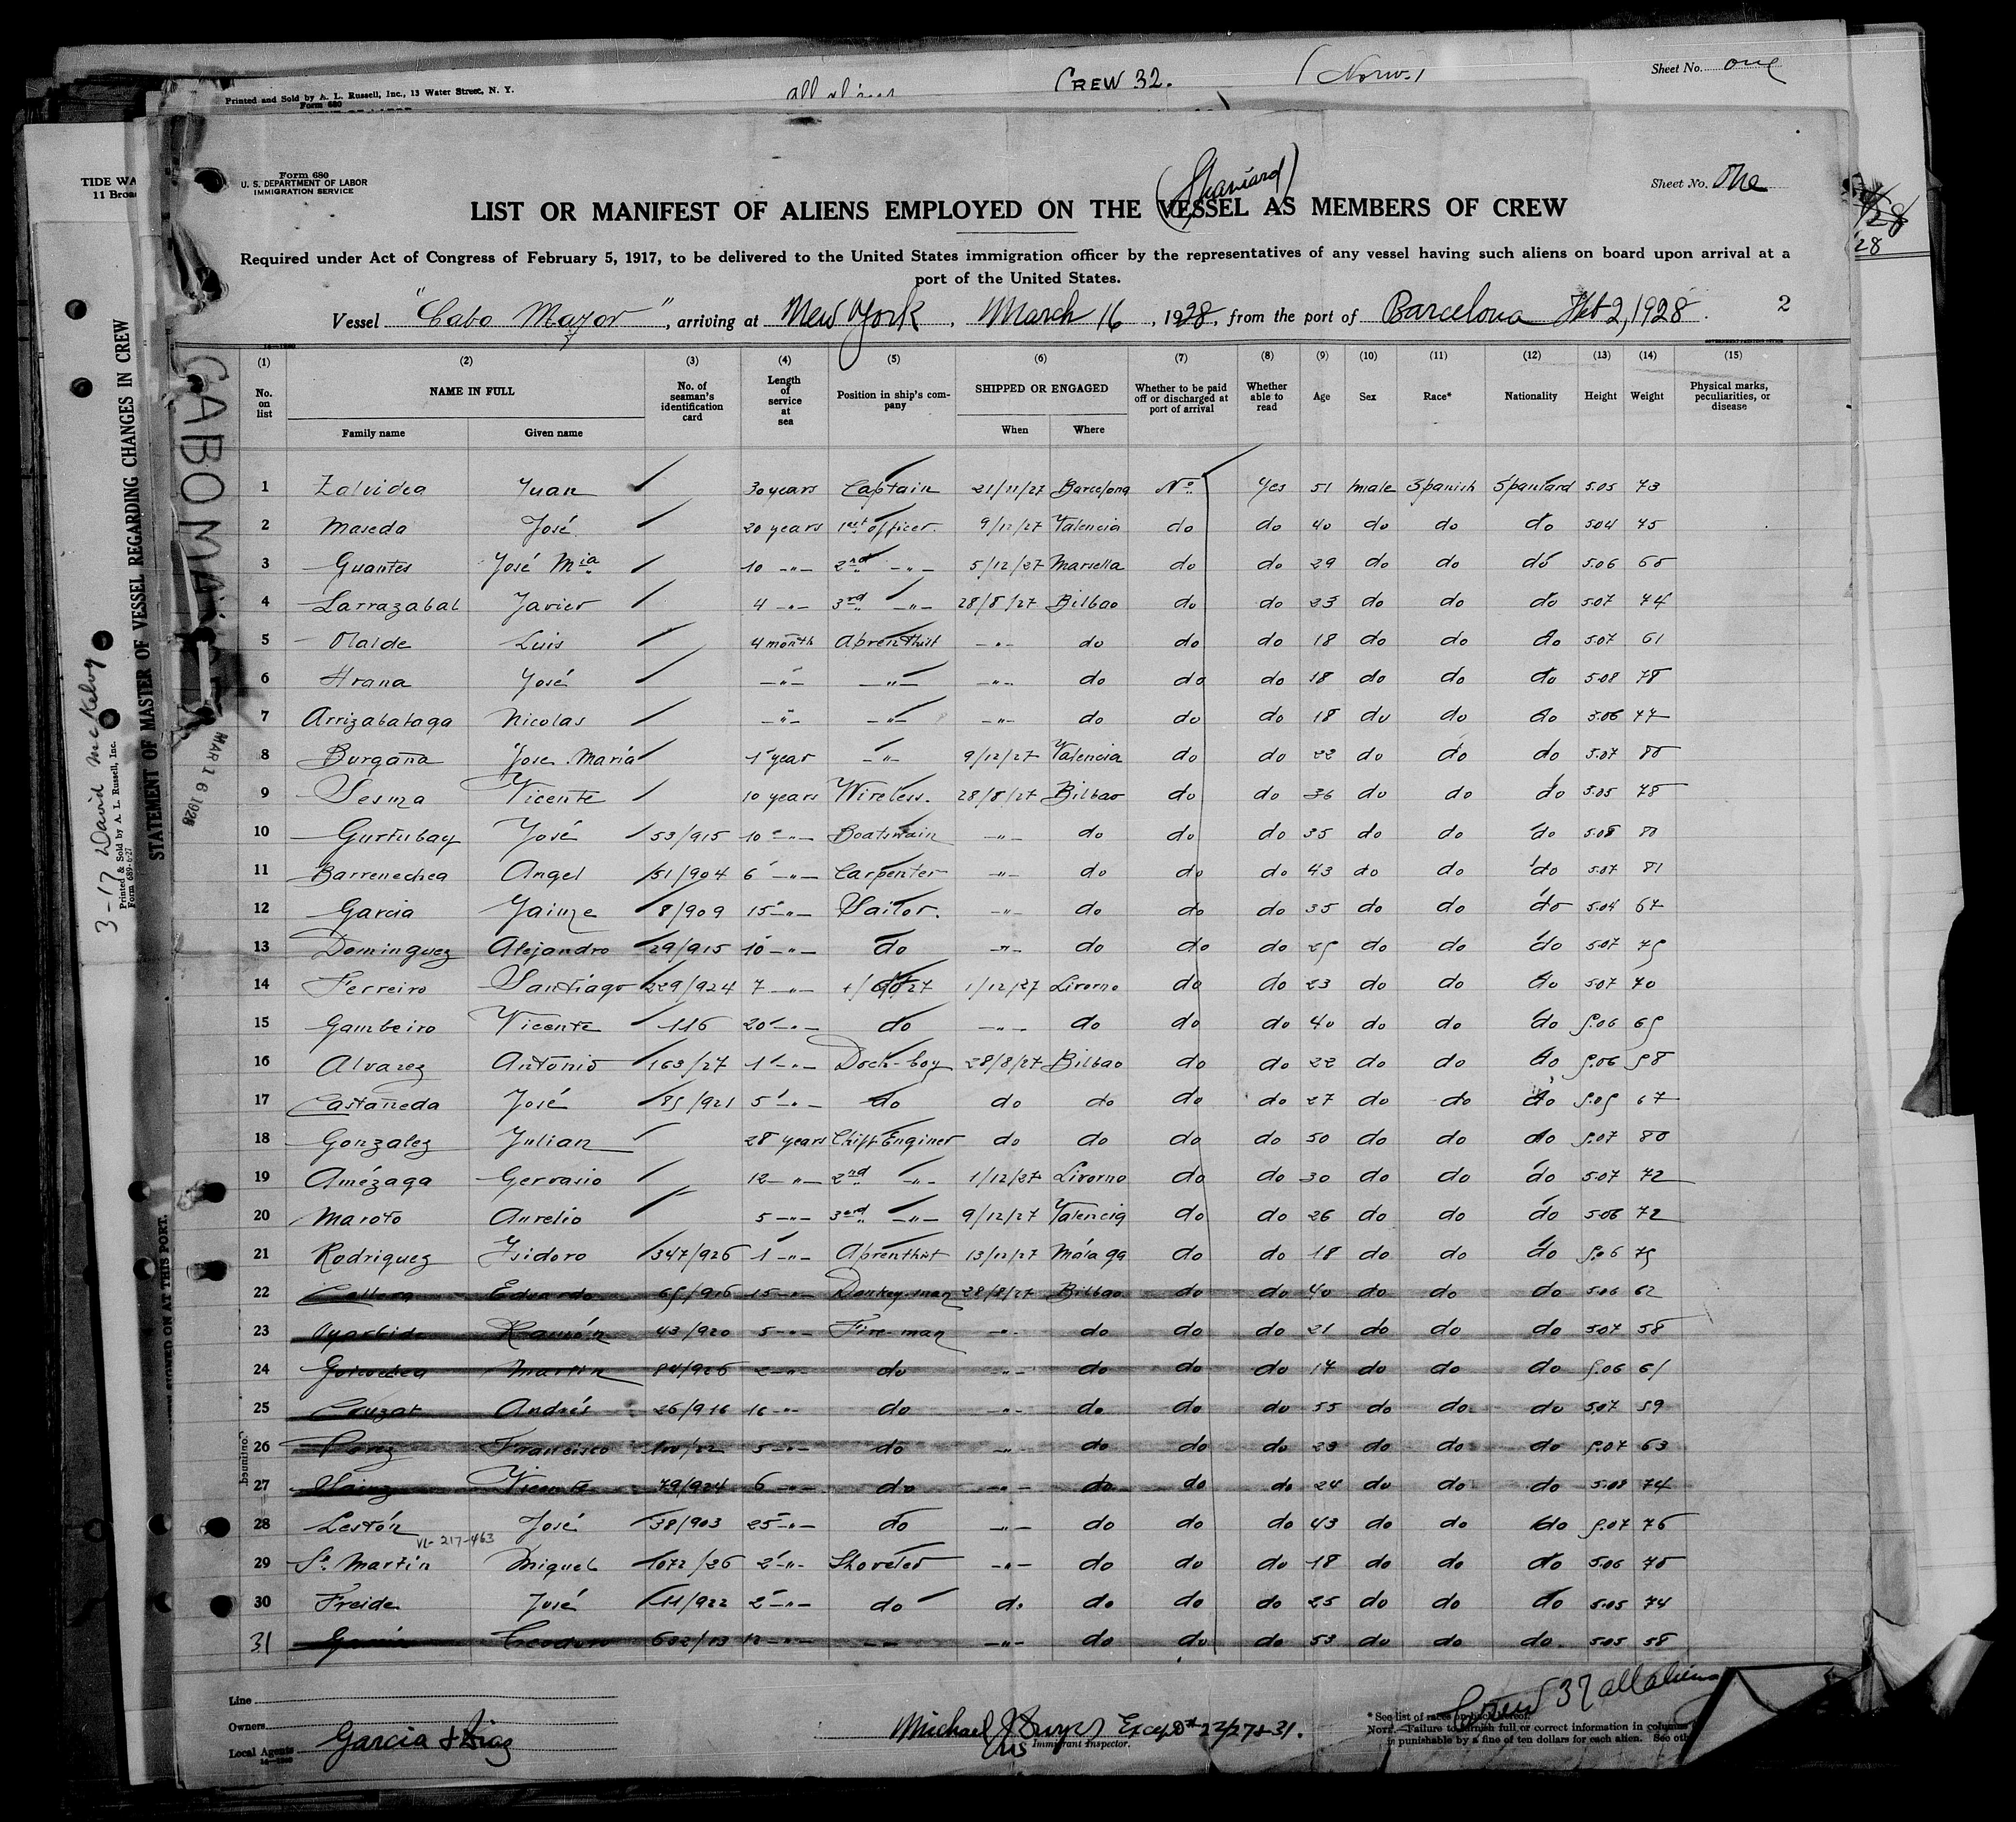 Printed and Sold by A. L. Russell, Inc., 13 Water Street, N. Y.
Form 680
CREW 32.
(Norw.)
Sheet No. one
TIDE WA
11 Broa
Form 680
U. S. DEPARTMENT OF LABOR
IMMIGRATION SERVICE
(Spaniard)
Sheet No. One
LIST OR MANIFEST OF ALIENS EMPLOYED ON THE VESSEL AS MEMBERS OF CREW
Required under Act of Congress of February 5, 1917, to be delivered to the United States immigration officer by the representatives of any vessel having such aliens on board upon arrival at a
port of the United States.
Vessel "Cabo Mayor", arriving at New York, March 16, 1928, from the port of Barcelona Feb 2, 1928. 2
(1) (2) (3) (4) (5) (6) (7) (8) (9) (10) (11) (12) (13) (14) (15)
No. on list NAME IN FULL Family name Given name No. of seaman's identification card Length of service at sea Position in ship's company SHIPPED OR ENGAGED When Where Whether to be paid off or discharged at port of arrival Whether able to read Age Sex Race* Nationality Height Weight Physical marks, peculiarities, or disease
1 Zalvidea Juan 30 years Captain 21/11/27 Barcelona No Yes 51 male Spanish Spaniard 5.05 73
2 Maseda José 20 years 1st officer. 9/12/27 Valencia do do 40 do do do 5.04 75
3 Guantes José Mia 10 -"- 2nd -"- 5/12/27 Marsella do do 29 do do do 5.06
4 Larrazabal Javier 4 -"- 3rd -"- 28/8/27 Bilbao do do 23 do do do 5.07 74
5 Olalde Luis 4 month Aprenthist -"- do do do 18 do do do 5.07 61
6 José -"- -"- -"- do do do 18 do do do 5.08 78
7 Arrizabalaga Nicolas -"- -"- -"- do do do 18 do do do 5.06 77
8 Burgaña Jose Maria 1 year -"- 9/12/27 Valencia do do 22 do do do 5.07 80
9 Sesma Vicente 10 years Wireless. 28/8/27 Bilbao do do 36 do do do 5.05 78
10 Gurtubay José 53/915 10 -"- Boatswain -"- do do do 35 do do do 5.08 80
11 Barrenechea Angel 51/904 6 -"- Carpenter -"- do do do 43 do do do 5.07 81
12 Garcia Jaime 8/909 15 -"- Sailor. -"- do do do 35 do do do 5.04 67
13 Dominguez Alejandro 29/915 10 -"- do -"- do do do 25 do do do 5.07 75
14 Ferreiro Santiago 229/924 7 -"- do 1/12/27 Livorno do do 23 do do do 5.07 70
15 Gambeiro Vicente 116 20 -"- do -"- do do do 40 do do do 5.06 65
16 Alvarez Antonio 163/27 1 -"- Deck-boy 28/8/27 Bilbao do do 22 do do do 5.06 58
17 Castañeda José 85/921 5 -"- do do do do do 27 do do do 5.05 67
18 Gonzalez Julian 28 years Chift Enginer do do do do 50 do do do 5.07 80
19 Amézaga Gervasio 12 -"- 2nd -"- 1/12/27 Livorno do do 30 do do do 5.07 72
20 Maroto Aurelio 5 -"- 3erd -"- 9/12/27 Valencia do do 26 do do do 5.06 72
21 Rodriguez Isidoro 347/926 1 -"- Aprenthist 13/12/27 Malaga do do 18 do do do 5.06 75
22 Eduardo 65/916 15 -"- Donkey-man 28/8/27 Bilbao do do 40 do do do 5.06 62
23 Ramón 43/920 5 -"- Fire-man -"- do do do 21 do do do 5.07 58
24 Goicochea Martin 84/926 2 -"- do -"- do do do 17 do do do 5.06 61
25 Andrés 26/916 16 -"- do -"- do do do 55 do do do 5.07 59
26 Perez Francisco 5 -"- do -"- do do do 23 do do do 5.07 63
27 Sainz Vicente 79/924 6 -"- do -"- do do do 24 do do do 5.08 74
28 Lestón José 38/903 25 -"- do -"- do do do 43 do do do 5.07 76
VL-217-463
29 Sn Martin Miguel 1072/26 2 -"- Shoveler -"- do do do 18 do do do 5.06 70
30 Freide José 11/922 2 -"- do do do do do 25 do do do 5.05 74
31 Garcia 692/13 12 -"- -"- -"- do do do 53 do do do 5.05 58
Line
Owners
Local Agents Garcia & Diaz
Michael J Dwyer Except # 22/27 & 31.
Immigrant Inspector.
Crew 37 all aliens
* See list of races on back hereof.
NOTE.—Failure to furnish full or correct information in columns
is punishable by a fine of ten dollars for each alien. See oth
CABO MAYOR
MAR 16 1928
STATEMENT OF MASTER OF VESSEL REGARDING CHANGES IN CREW
3-17 David McKelvy
Printed & Sold by A. L. Russell, Inc.
Form 689-6-27
SIGNED ON AT THIS PORT.
Continued
28